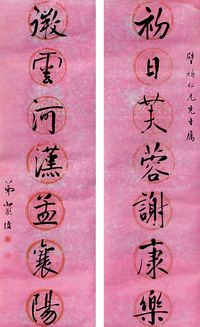 仁兄先生属
初日芙蓉謝康樂
微雲河漢孟襄陽
弟